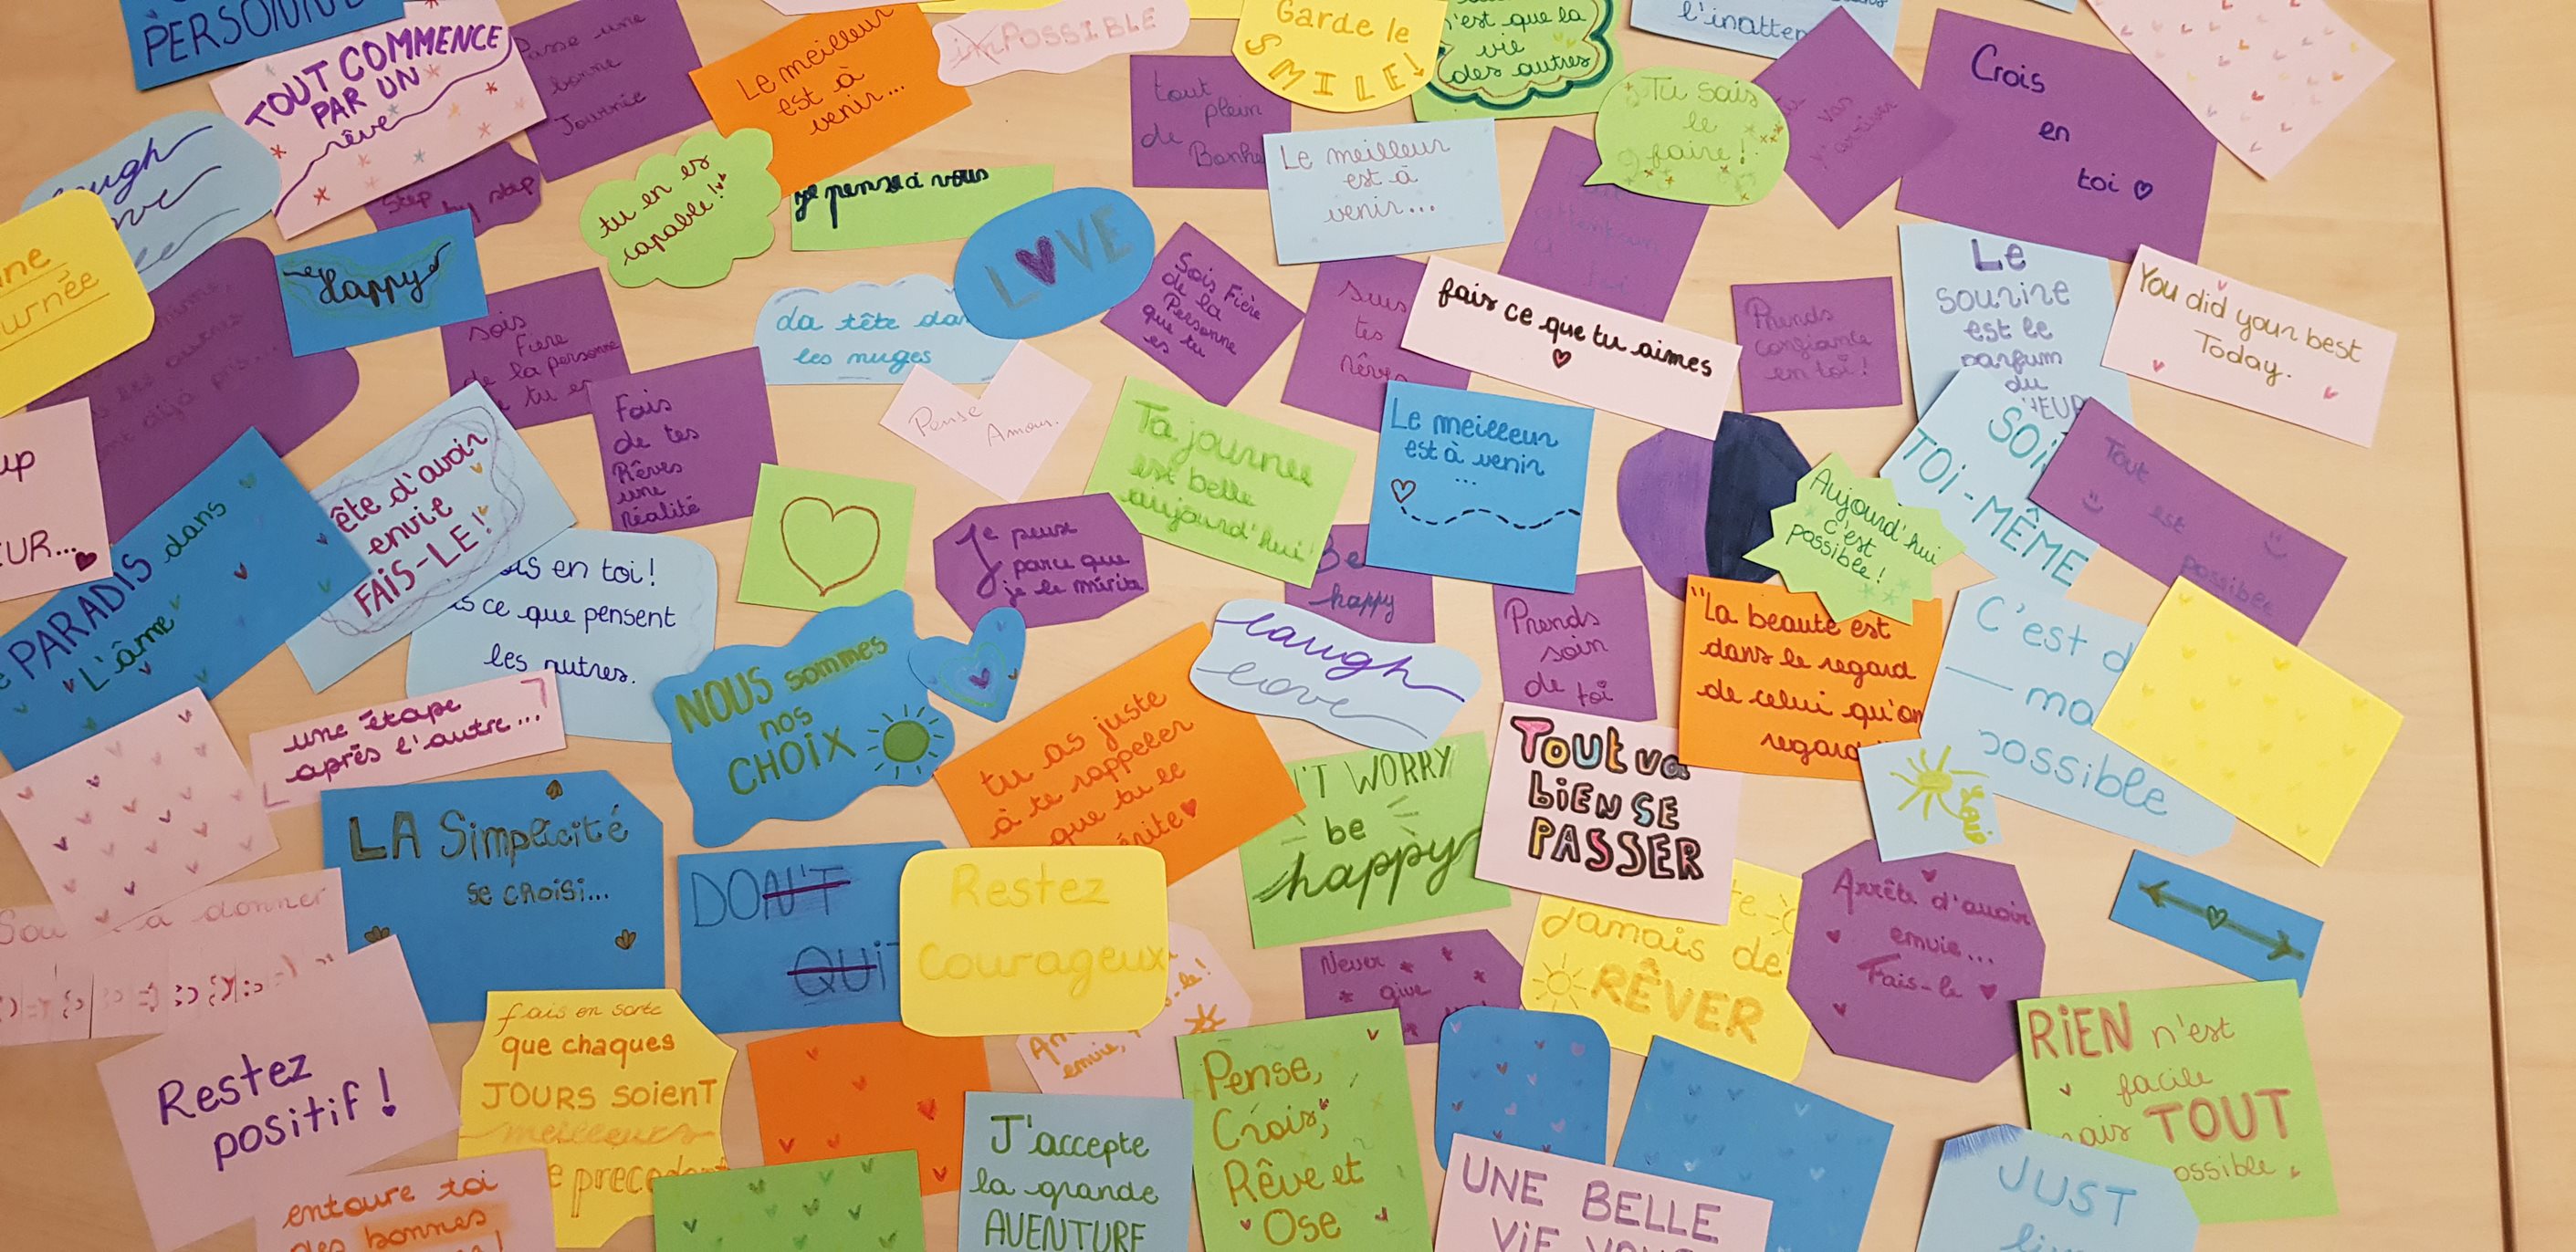 PERSONNE
TOUT COMMENCE
PAR UN
rêve
Passe une
bonne
Journée
Le meilleur
est à
venir...
imPOSSIBLE
Garde le
SMILE!
n'est que la
vie
des autres
l'inatten
tout
plein
de
Tu sais
le
faire!
Crois
en
toi
Laugh
Step by step
tu en es
capable!
je pense à vous
LOVE
Le meilleur
est à
venir...
Happy
sois
Fière
de la personne
tu es
La tête dan
les nuges
Sois Fière
de la
Personne
que tu
es
Suis
tes
rêves
fais ce que tu aimes
Prends
confiance
en toi!
Le
sourire
est le
parfum
du
You did your best
Today.
Fais
de tes
Rêves
une
Réalité
Pense
Amour.
Ta journée
est belle
aujourd'hui
Le meilleur
est à venir
...
SOIS
TOI-MÊME
Tout
est
possible
ête d'avoir
envie
FAIS-LE!
PARADIS dans
L'âme
UR...
Je peux
parce que
je le mérite
Be
happy
Aujourd'hui
c'est
possible!
en toi!
ce que pensent
les autres.
NOUS sommes
nos
CHOIX
Laugh
Love
Prends
soin
de toi
"La beauté est
dans le regard
de celui qu'on
regard
C'est d
ma
possible
une étape
après l'autre...
tu as juste
à te rappeler
que tu le
mérite
'T WORRY
be
happy
Tout va
biEN SE
PASSER
LA Simplicité
se choisi...
DON'T
QUIT
Restez
Courageux
Jamais de
RÊVER
Arrête d'avoir
envie...
Fais-le
à donner
Never
give
Restez
positif!
fais en sorte
que chaques
JOURS soient
meilleurs
precedent
envie,
Pense,
Crois,
Rêve et
Ose
RiEN n'est
facile
mais TOUT
possible
entoure toi
des bonnes
J'accepte
la grande
AVENTURE
UNE BELLE
ViE VOUS
JUST